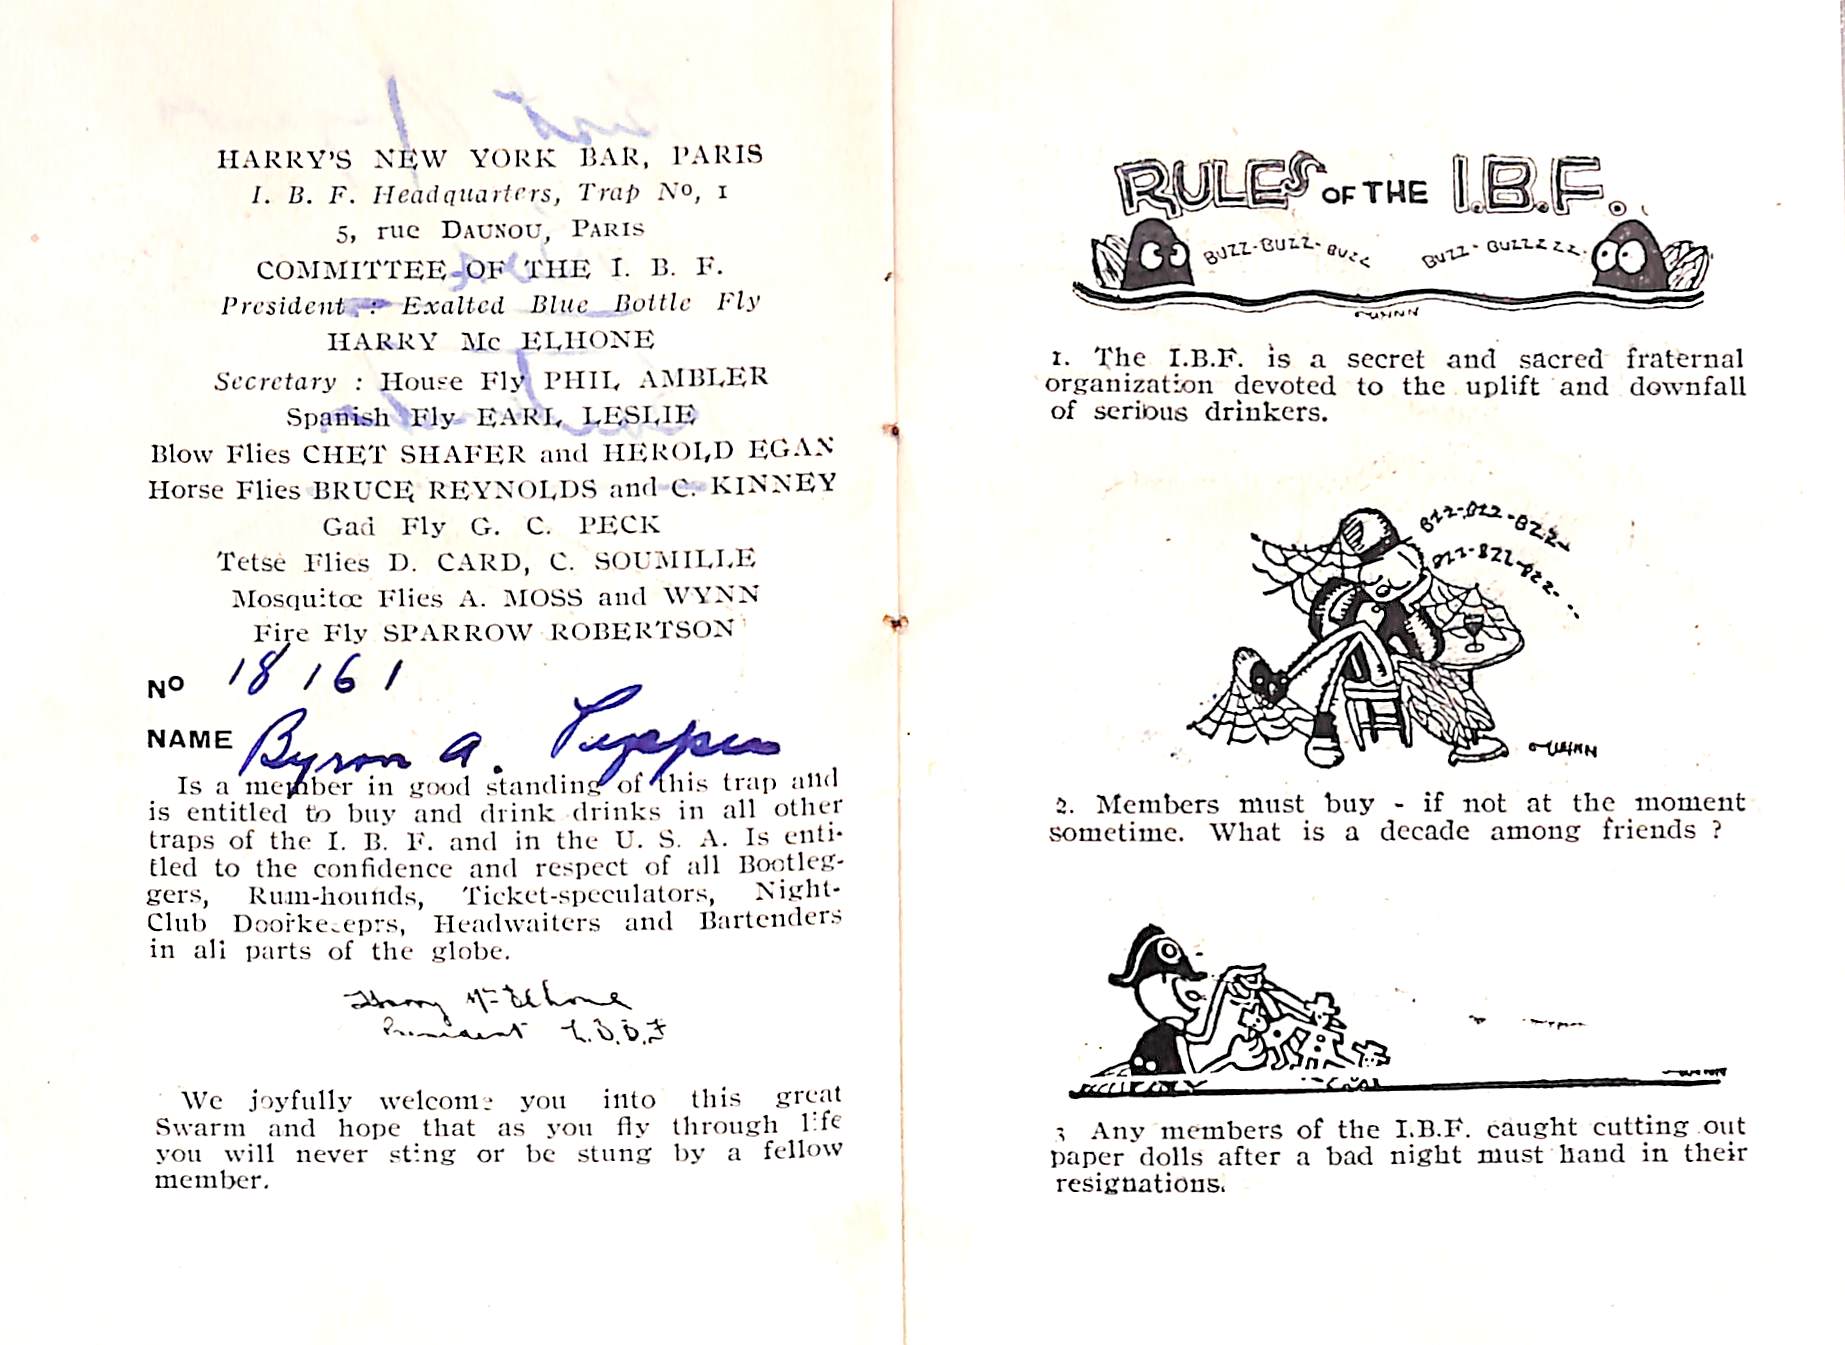 HARRY'S NEW YORK BAR, PARIS
I. B. F. Headquarters, Trap No, 1
5, rue DAUNOU, PARIS
COMMITTEE OF THE I. B. F.
President : Exalted Blue Bottle Fly
HARRY Mc ELHONE
Secretary : House Fly PHIL AMBLER
Spanish Fly EARL LESLIE
Blow Flies CHET SHAFER and HEROLD EGAN
Horse Flies BRUCE REYNOLDS and C. KINNEY
Gad Fly G. C. PECK
Tetse Flies D. CARD, C. SOUMILLE
Mosquitœ Flies A. MOSS and WYNN
Fire Fly SPARROW ROBERTSON
No 18161
NAME Byron A.
Is a member in good standing of this trap and
is entitled to buy and drink drinks in all other
traps of the I. B. F. and in the U. S. A. Is enti-
tled to the confidence and respect of all Bootleg-
gers, Rum-hounds, Ticket-speculators, Night-
Club Doorke.eprs, Headwaiters and Bartenders
in all parts of the globe.
Harry Mc Elhone
President I.B.F
We joyfully welcome you into this great
Swarm and hope that as you fly through life
you will never sting or be stung by a fellow
member.
RULES OF THE I.B.F.
BUZZ-BUZZ-BUZZ BUZZ-BUZZZZZ.
WYNN
1. The I.B.F. is a secret and sacred fraternal
organization devoted to the uplift and downfall
of serious drinkers.
BZZ-BZZ-BZZ-
BZZ-BZZ-BZZ-..
WYNN
2. Members must buy - if not at the moment
sometime. What is a decade among friends ?
3 Any members of the I.B.F. caught cutting out
paper dolls after a bad night must hand in their
resignations.